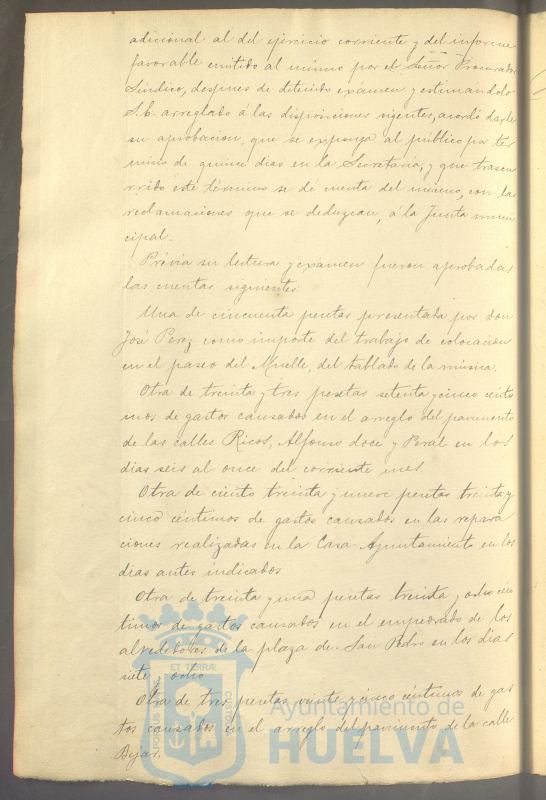 adicional al del ejercicio corriente y del informe
favorable emitido al mismo por el Señor Procurador
Síndico, despues de detenido exámen y estimandolo
S.E. arreglado á las disposiciones vigentes, acordó darle
su aprobacion, que se exponga al público por tér
mino de quince dias en la Secretaría, y que trascu
rrido éste término se dé cuenta del mismo, con las
reclamaciones que se deduzcan, á la Junta muni
cipal.
Prévia su lectura y exámen fueron aprobadas
las cuentas siguientes:
Una de cincuenta pesetas presentada por don
José Perez como importe del trabajo de colocacion
en el paseo del Muelle, del tablado de la música.
Otra de treinta y tres pesetas setenta y cinco cénti
mos de gastos causados en el arreglo del pavimento
de las calles Ricos, Alfonso doce y Peral en los
dias seis al once del corriente mes.
Otra de ciento treinta y nueve pesetas treinta y
cinco céntimos de gastos causados en las repara
ciones realizadas en la Casa Ayuntamiento en los
dias antes indicados
Otra de treinta y una pesetas treinta y ocho cén
timos de gastos causados en el empedrado de los
alrededores de la plaza de San Pedro en los dias
siete y ocho
Otra de tres pesetas veinte y cinco céntimos de gas
tos causados en el arreglo del pavimento de la calle
Bejar.
ET TERRÆ
PORTUS MARIS
CUSTODIA
Ayuntamiento de
HUELVA